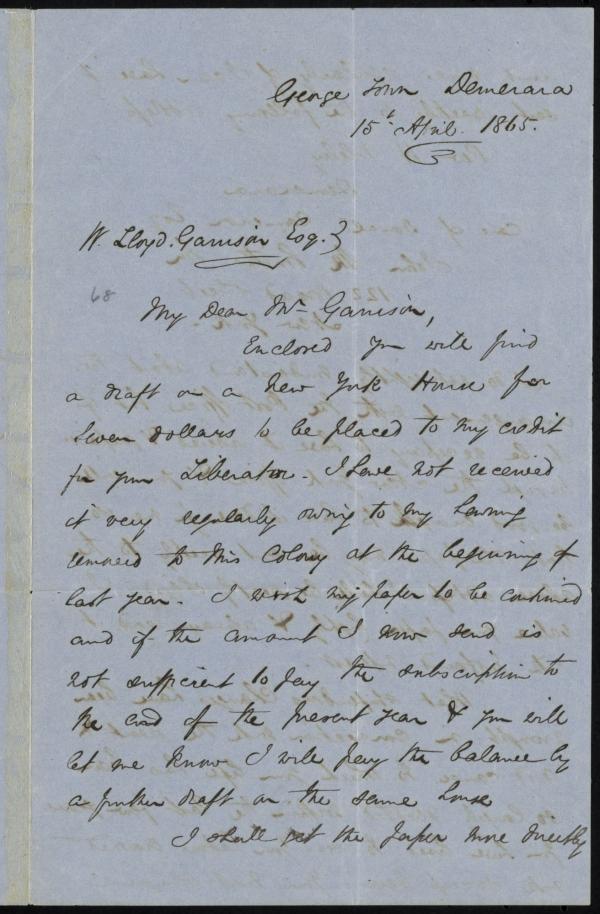 George Town Demerara
15th April. 1865.
W. Lloyd. Garrison Esq.}
68
My Dear Mr Garrison,
Enclosed you will find
a draft on a New York House for
Seven dollars to be placed to my credit
for your Liberator. I have not received
it very regularly owing to my having
removed to this Colony at the beginning of
last year. I wish my paper to be continued
and if the amount I now send is
not sufficient to pay the subscription to
the end of the present year & you will
let me know I will pay the balance by
a further draft on the same house
I shall get the paper more directly